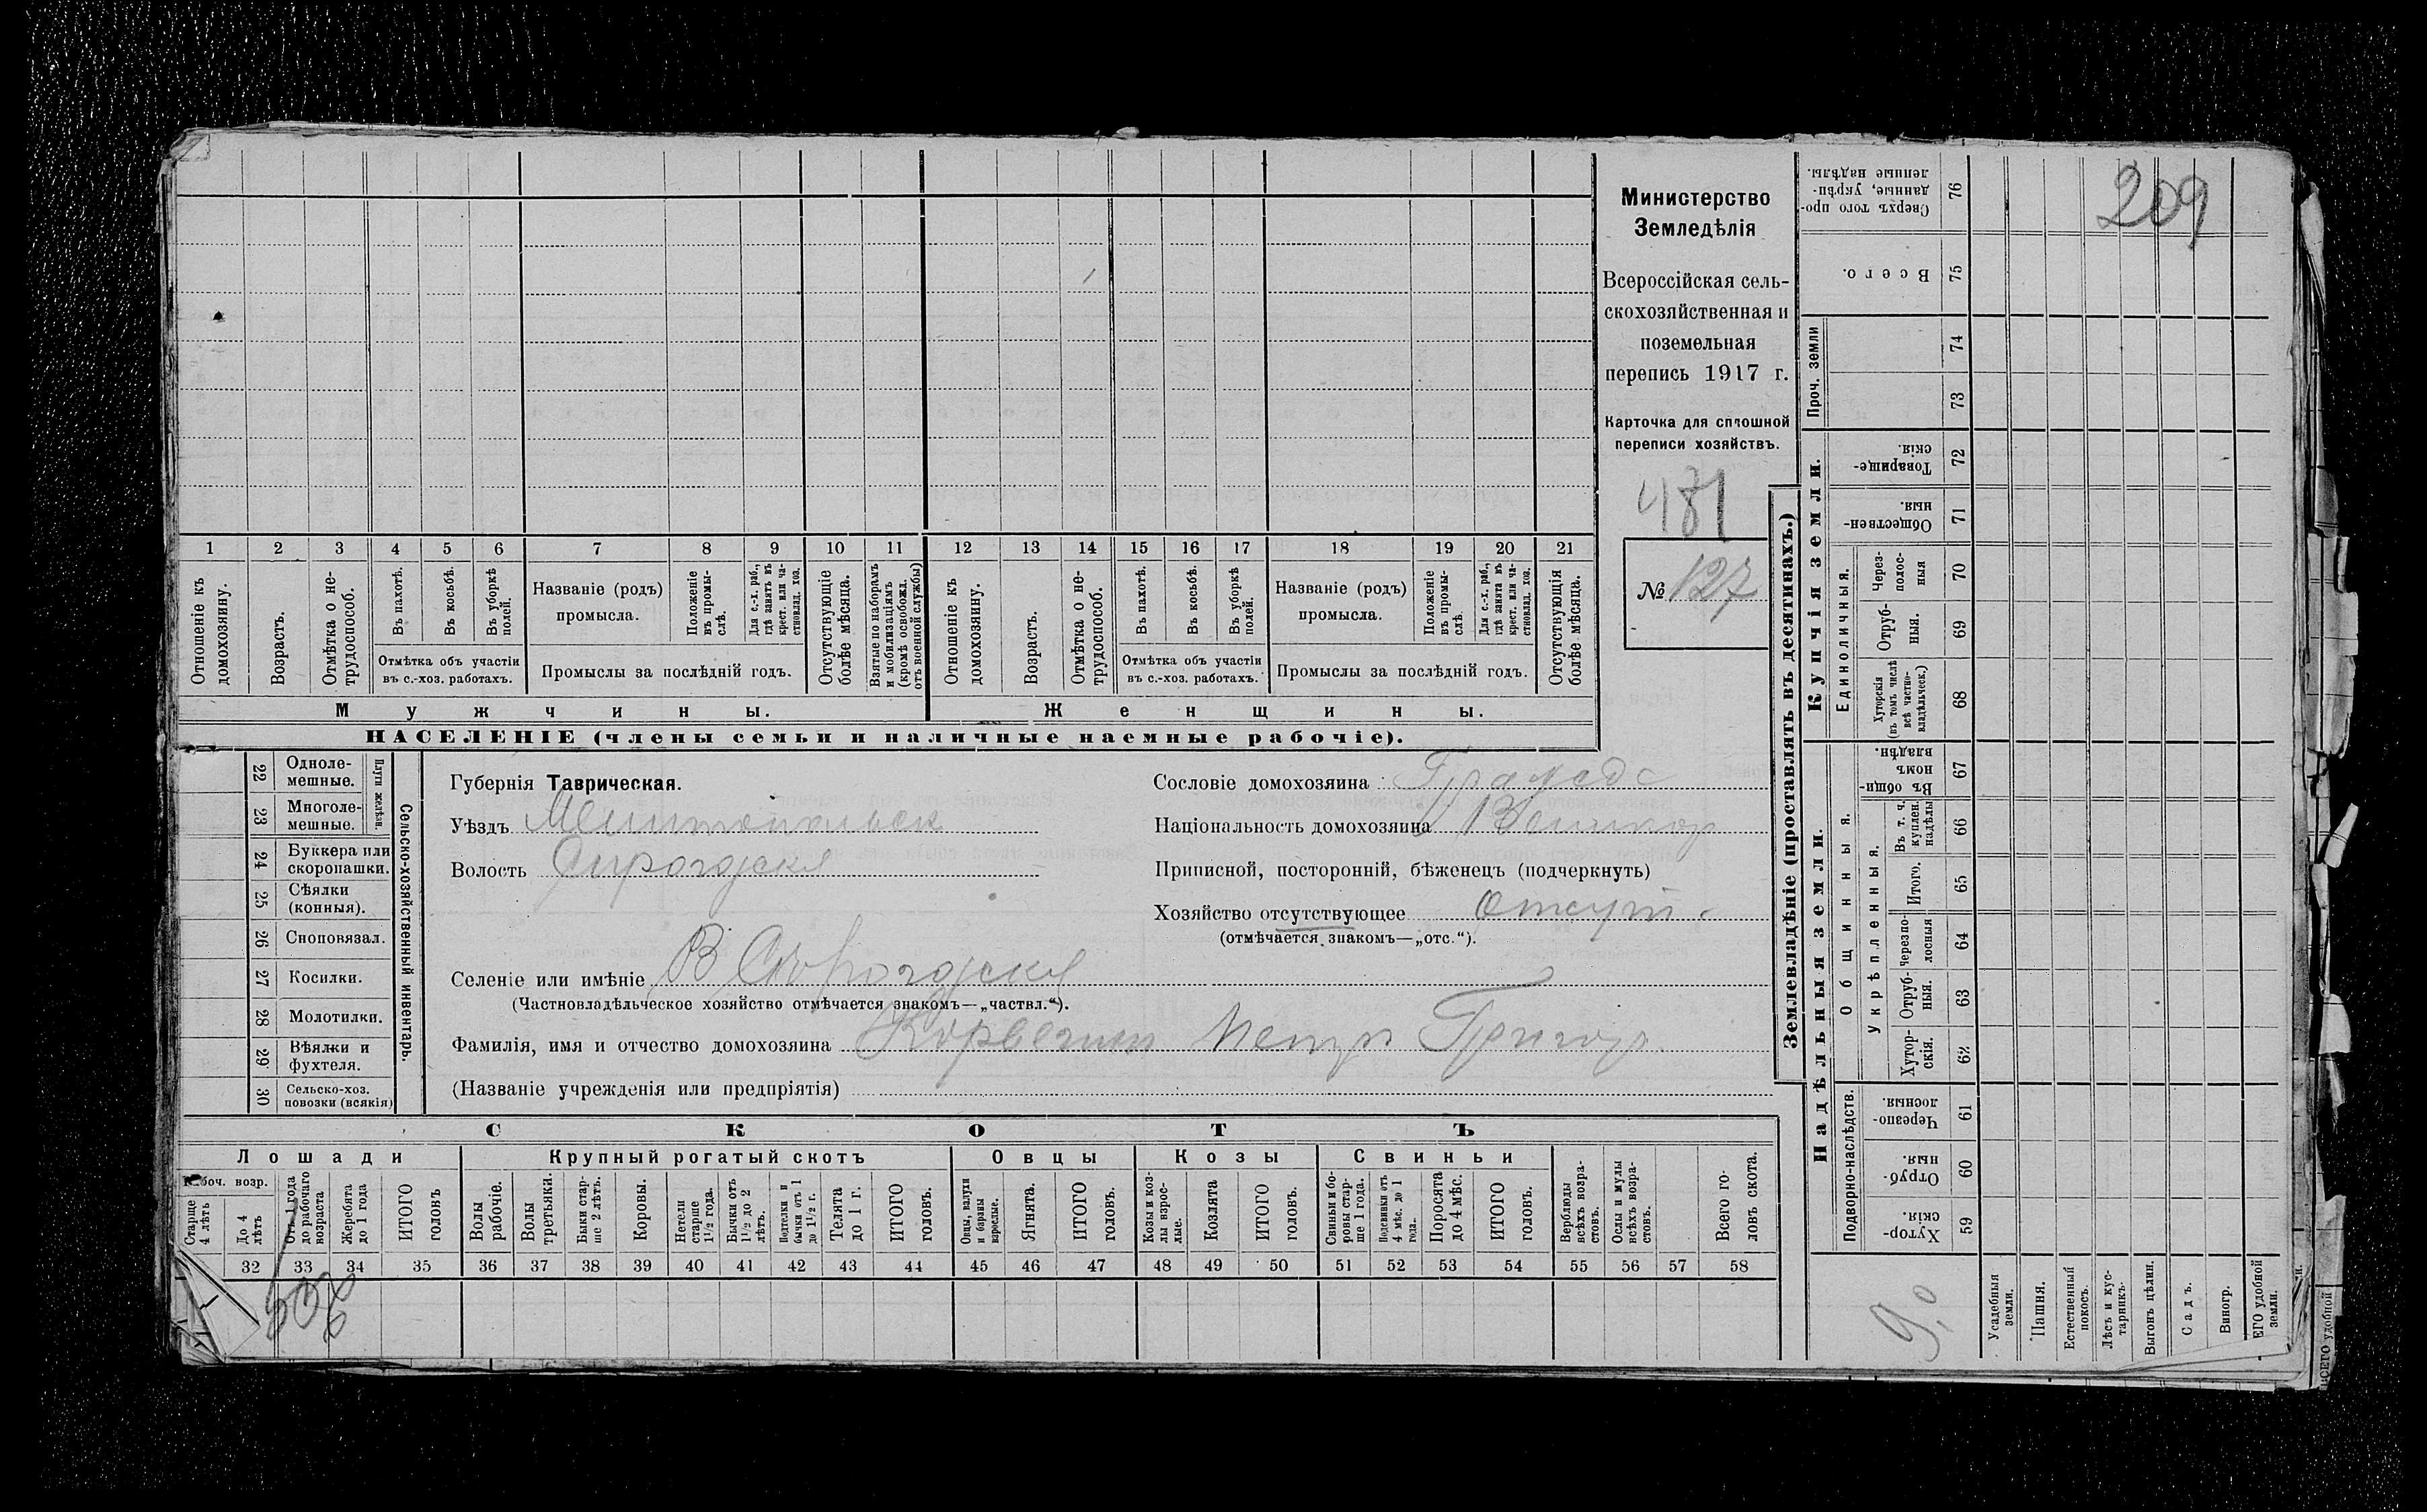 209
Министерство
Земледѣлія
Всероссійская сель-
скохозяйственная и
поземельная
перепись 1917 г.
Карточка для сплошной
переписи хозяйствъ.
481
№ 127
1 2 3 4 5 6 7 8 9 10 11 12 13 14 15 16 17 18 19 20 21
Отношеніе къ домохозяину.
Возрастъ.
Отмѣтка о не-трудоспособ.
Въ пахотѣ.
Въ косьбѣ.
Въ уборкѣ полей.
Отмѣтка объ участіи
въ с.-хоз. работахъ.
Названіе (родъ)
промысла.
Положеніе въ промы-слѣ.
Для с.-х. раб., гдѣ занятъ въ крест. или ча-стновлад. хоз.
Промыслы за послѣдній годъ.
Отсутствующіе болѣе мѣсяца.
Взятые по наборамъ и мобилизаціямъ (кромѣ освобожд. отъ военной службы)
Отношеніе къ домохозяину.
Возрастъ.
Отмѣтка о не-трудоспособ.
Въ пахотѣ.
Въ косьбѣ.
Въ уборкѣ полей.
Отмѣтка объ участіи
въ с.-хоз. работахъ.
Названіе (родъ)
промысла.
Положеніе въ промы-слѣ.
Для с.-х. раб., гдѣ занята въ крест. или ча-стновлад. хоз.
Промыслы за послѣдній годъ.
Отсутствующія болѣе мѣсяца.
Мужчины.
Женщины.
НАСЕЛЕНІЕ (члены семьи и наличные наемные рабочіе).
22 Одноле-мешные.
23 Многоле-мешные.
Плуги желѣзн.
24 Буккера или скоропашки.
25 Сѣялки (конныя).
26 Сноповязал.
27 Косилки.
28 Молотилки.
29 Вѣялки и фухтеля.
30 Сельско-хоз. повозки (всякія)
Сельско-хозяйственный инвентарь.
Губернія Таврическая.
Уѣздъ Мелитопольск
Волость
Селеніе или имѣніе В
(Частновладѣльческое хозяйство отмѣчается знакомъ—„частвл.“).
Фамилія, имя и отчество домохозяина Петръ Григор.
(Названіе учрежденія или предпріятія)
Сословіе домохозяина
Національность домохозяина
Приписной, посторонній, бѣженецъ (подчеркнуть)
Хозяйство отсутствующее Отсут
(отмѣчается знакомъ—„отс.“).
СКОТЪ
Лошади
Крупный рогатый скотъ
Овцы
Козы
Свиньи
Рабоч. возр.
Старще 4 лѣтъ
До 4 лѣтъ
От 1 года до рабочаго возраста
Жеребята до 1 года
ИТОГО головъ
Волы рабочіе.
Волы третьяки.
Быки стар-ше 2 лѣтъ.
Коровы.
Нетели старше 1½ года.
Бычки отъ 1½ до 2 лѣтъ.
Подтелки и бычки отъ 1 до 1½ г.
Телята до 1 г.
ИТОГО головъ.
Овцы, валухи и бараны взрослые.
Ягнята.
ИТОГО головъ.
Козы и коз-лы взрос-лые.
Козлята
ИТОГО головъ.
Свиньи и бо-ровы стар-ше 1 года.
Подсвинки отъ 4 мѣс. до 1 года.
Поросята до 4 мѣс.
ИТОГО головъ.
Верблюды всѣхъ возра-стовъ.
Ослы и мулы всѣхъ возра-стовъ.
Всего го-ловъ скота.
32 33 34 35 36 37 38 39 40 41 42 43 44 45 46 47 48 49 50 51 52 53 54 55 56 57 58
Землевладѣніе (проставлять въ десятинахъ.)
Купчія земли.
Надѣльныя земли.
Сверхъ того про-данные, укрѣп-ленные надѣлы. 76
Всего. 75
Проч. земли
74
73
Товарище-скія. 72
Обществен-ныя. 71
Единоличныя.
Через-полос-ныя 70
Отруб-ныя. 69
Хуторскія (въ томъ числѣ всѣ частно-владѣльческ.) 68
Общинныя.
Въ общин-номъ владѣн. 67
Укрѣпленныя.
Въ т. ч. куплен. надѣлы 66
Итого. 65
Черезпо-лосныя 64
Отруб-ныя. 63
Хутор-скія. 62
Подворно-наслѣдств.
Черезпо-лосныя. 61
Отруб-ныя. 60
Хутор-скія. 59
Усадебныя земли.
Пашня.
Естественный покосъ.
Лѣсъ и кус-тарникъ.
Выгонъ цѣлин.
Садъ.
Виногр.
ЕГО удобной земли.
ВСЕГО удобной